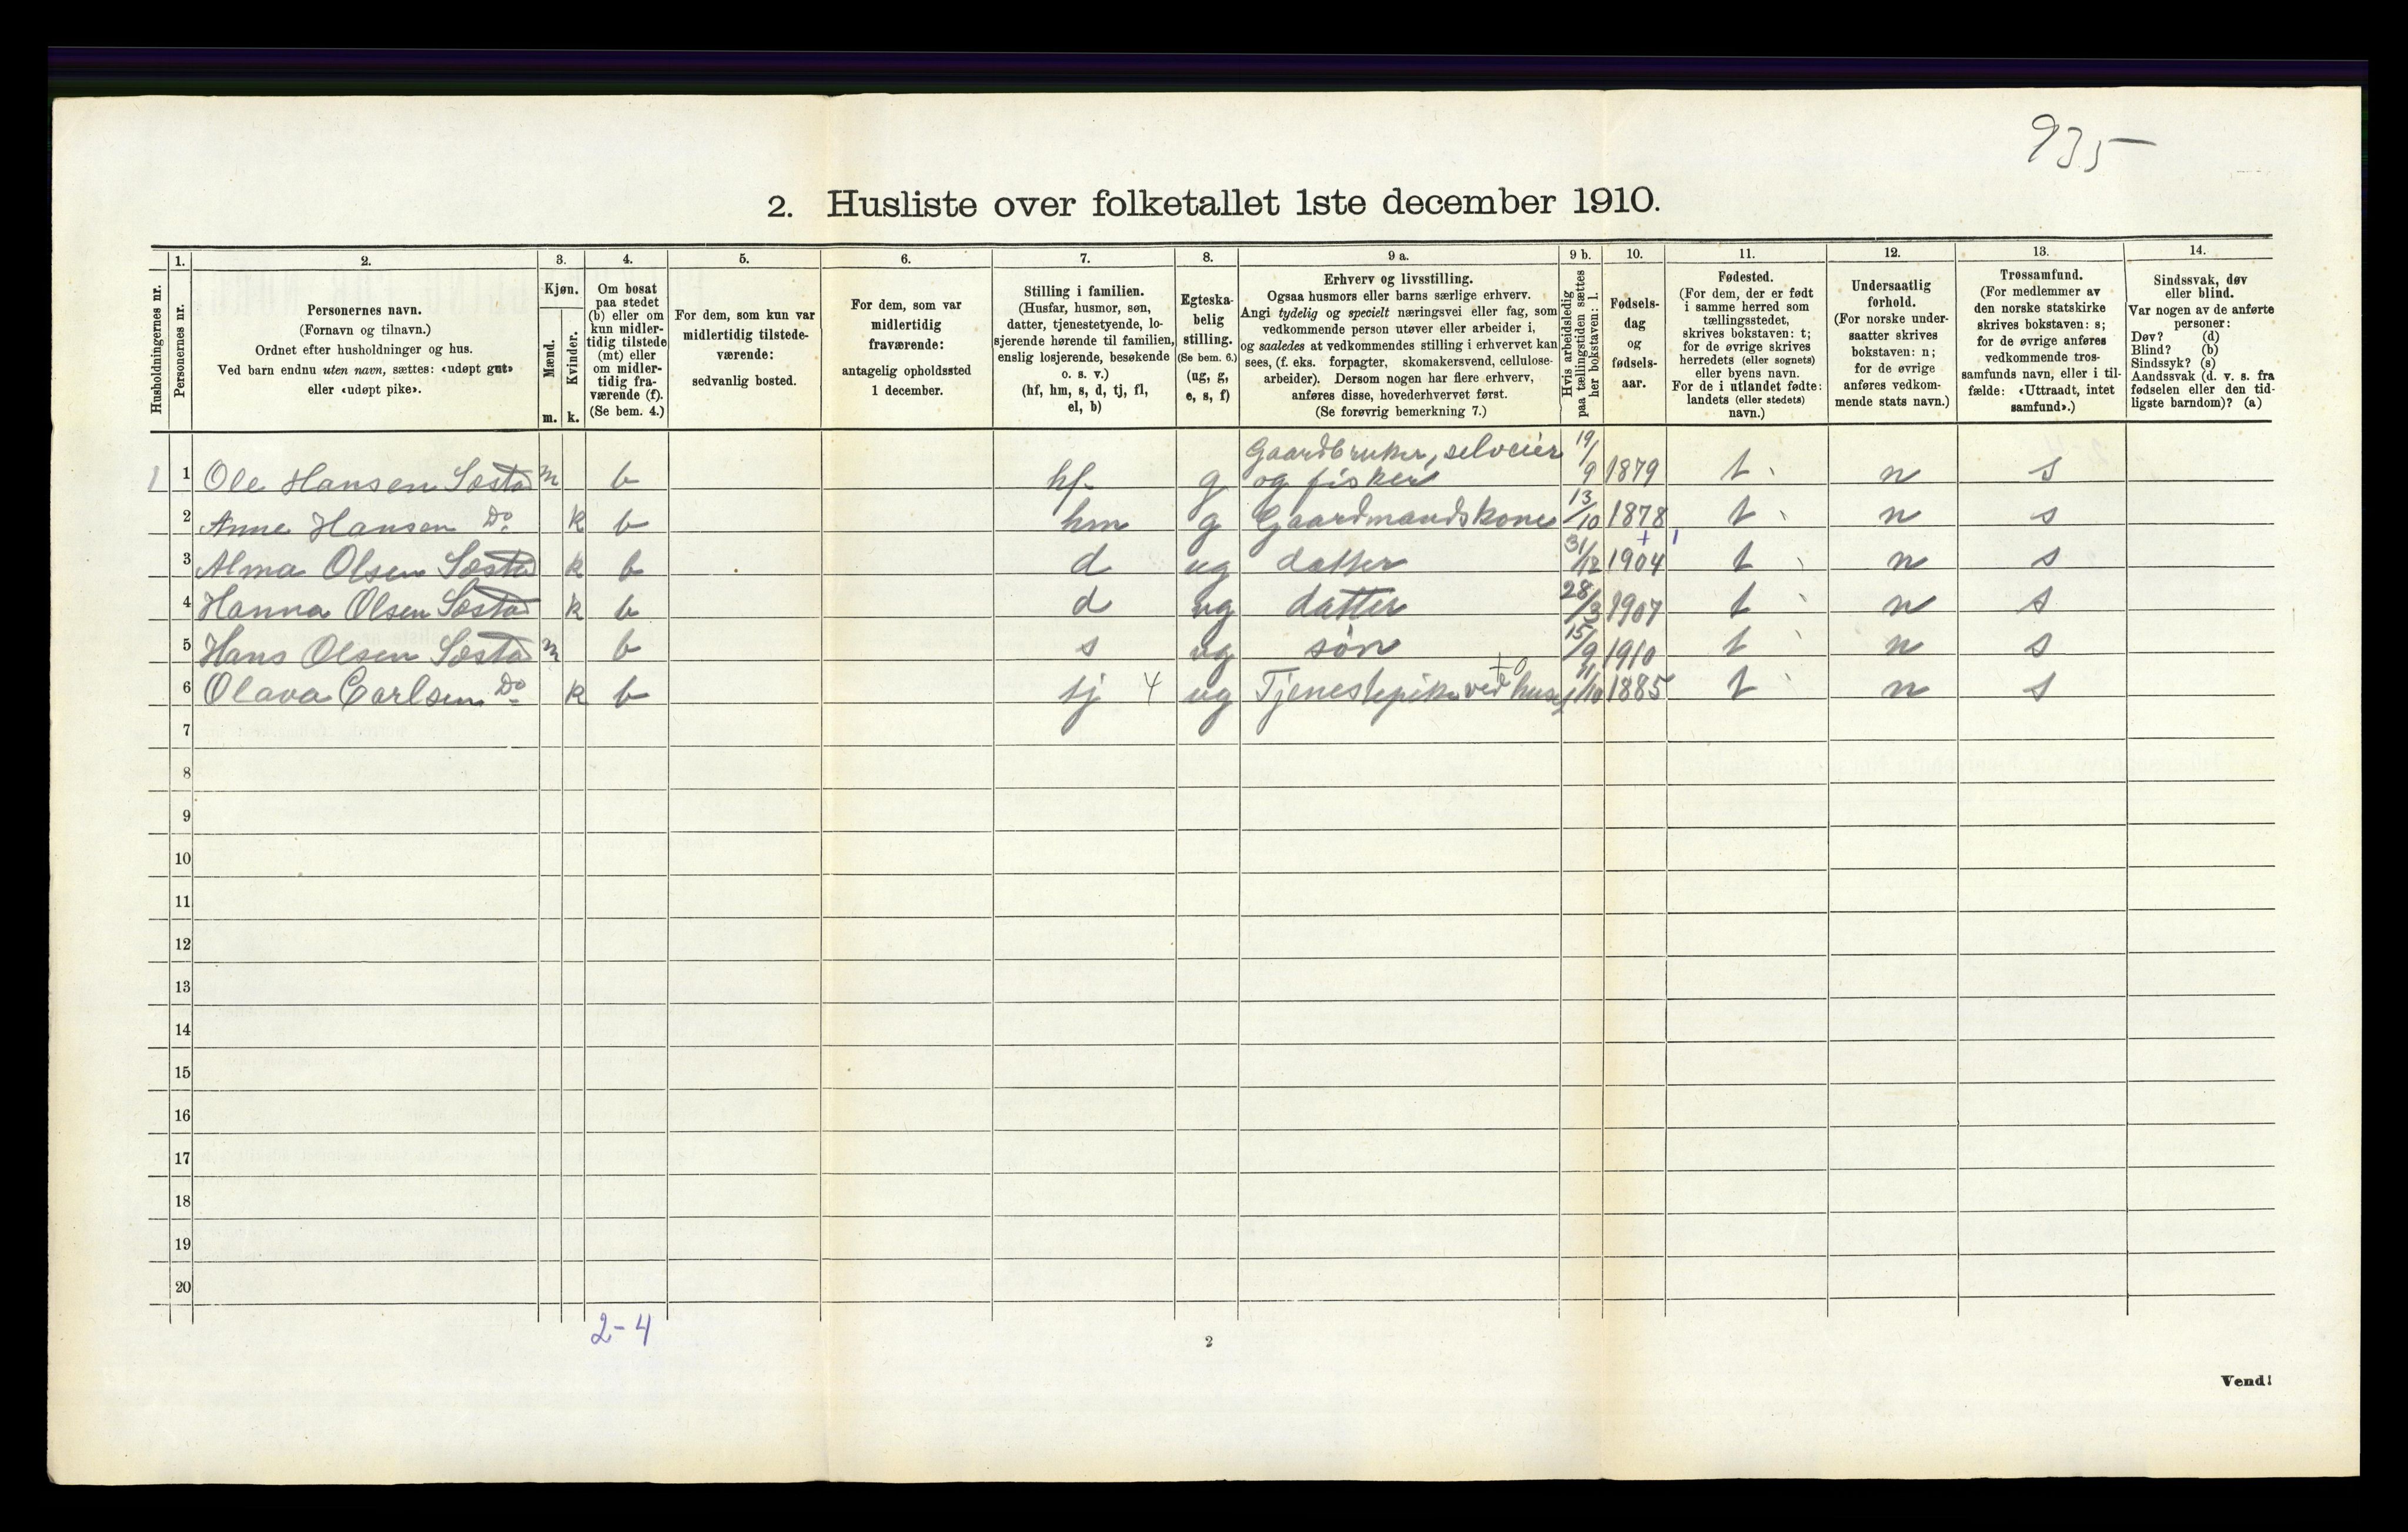 935
2. Husliste over folketallet 1ste december 1910.
Husholdningernes nr.
1.
Personernes nr.
2.
Personernes navn.
(Fornavn og tilnavn.)
Ordnet efter husholdninger og hus.
Ved barn endnu uten navn, sættes: «udøpt gut»
eller «udøpt pike».
3.
Kjøn.
Mænd.
Kvinder.
m. k.
4.
Om bosat
paa stedet
(b) eller om
kun midler-
tidig tilstede
(mt) eller
om midler-
tidig fra-
værende (f).
(Se bem. 4.)
5.
For dem, som kun var
midlertidig tilstede-
værende:
sedvanlig bosted.
6.
For dem, som var
midlertidig
fraværende:
antagelig opholdssted
1 december.
7.
Stilling i familien.
(Husfar, husmor, søn,
datter, tjenestetyende, lo-
sjerende hørende til familien,
enslig losjerende, besøkende
o. s. v.)
(hf, hm, s, d, tj, fl,
el, b)
8.
Egteska-
belig
stilling.
(Se bem. 6.)
(ug, g,
e, s, f)
9 a.
Erhverv og livsstilling.
Ogsaa husmors eller barns særlige erhverv.
Angi tydelig og specielt næringsvei eller fag, som
vedkommende person utøver eller arbeider i,
og saaledes at vedkommendes stilling i erhvervet kan
sees, (f. eks. forpagter, skomakersvend, cellulose-
arbeider). Dersom nogen har flere erhverv,
anføres disse, hovederhvervet først.
(Se forøvrig bemerkning 7.)
9 b.
Hvis arbeidsledig
paa tællingstiden sættes
her bokstaven: l.
10.
Fødsels-
dag
og
fødsels-
aar.
11.
Fødested.
(For dem, der er født
i samme herred som
tællingsstedet,
skrives bokstaven: t;
for de øvrige skrives
herredets (eller sognets)
eller byens navn.
For de i utlandet fødte:
landets (eller stedets)
navn.)
12.
Undersaatlig
forhold.
(For norske under-
saatter skrives
bokstaven: n;
for de øvrige
anføres vedkom-
mende stats navn.)
13.
Trossamfund.
(For medlemmer av
den norske statskirke
skrives bokstaven: s;
for de øvrige anføres
vedkommende tros-
samfunds navn, eller i til-
fælde: «Uttraadt, intet
samfund».)
14.
Sindssvak, døv
eller blind.
Var nogen av de anførte
personer:
Døv? (d)
Blind? (b)
Sindssyk? (s)
Aandssvak (d. v. s. fra
fødselen eller den tid-
ligste barndom)? (a)
1 1 Ole Hansen Sæstad m b hf. g Gaardbruker, selveier og fisker 19/9 1879 t n s
2 Anne Hansen Do k b hm g Gaardmandskone 13/10 1878 t n s
3 Alma Olsen Sæstad k b d ug datter 31/12 1904 t n s
4 Hanna Olsen Sæstad k b d ug datter 28/3 1907 t n s
5 Hans Olsen Sæstad m b s ug søn 15/9 1910 t n s
6 Olava Carlsen Do k b tj 4 ug Tjenestepike ved huset 11/10 1885 t n s
7
8
9
10
11
12
13
14
15
16
17
18
19
20
2-4
2
Vend!